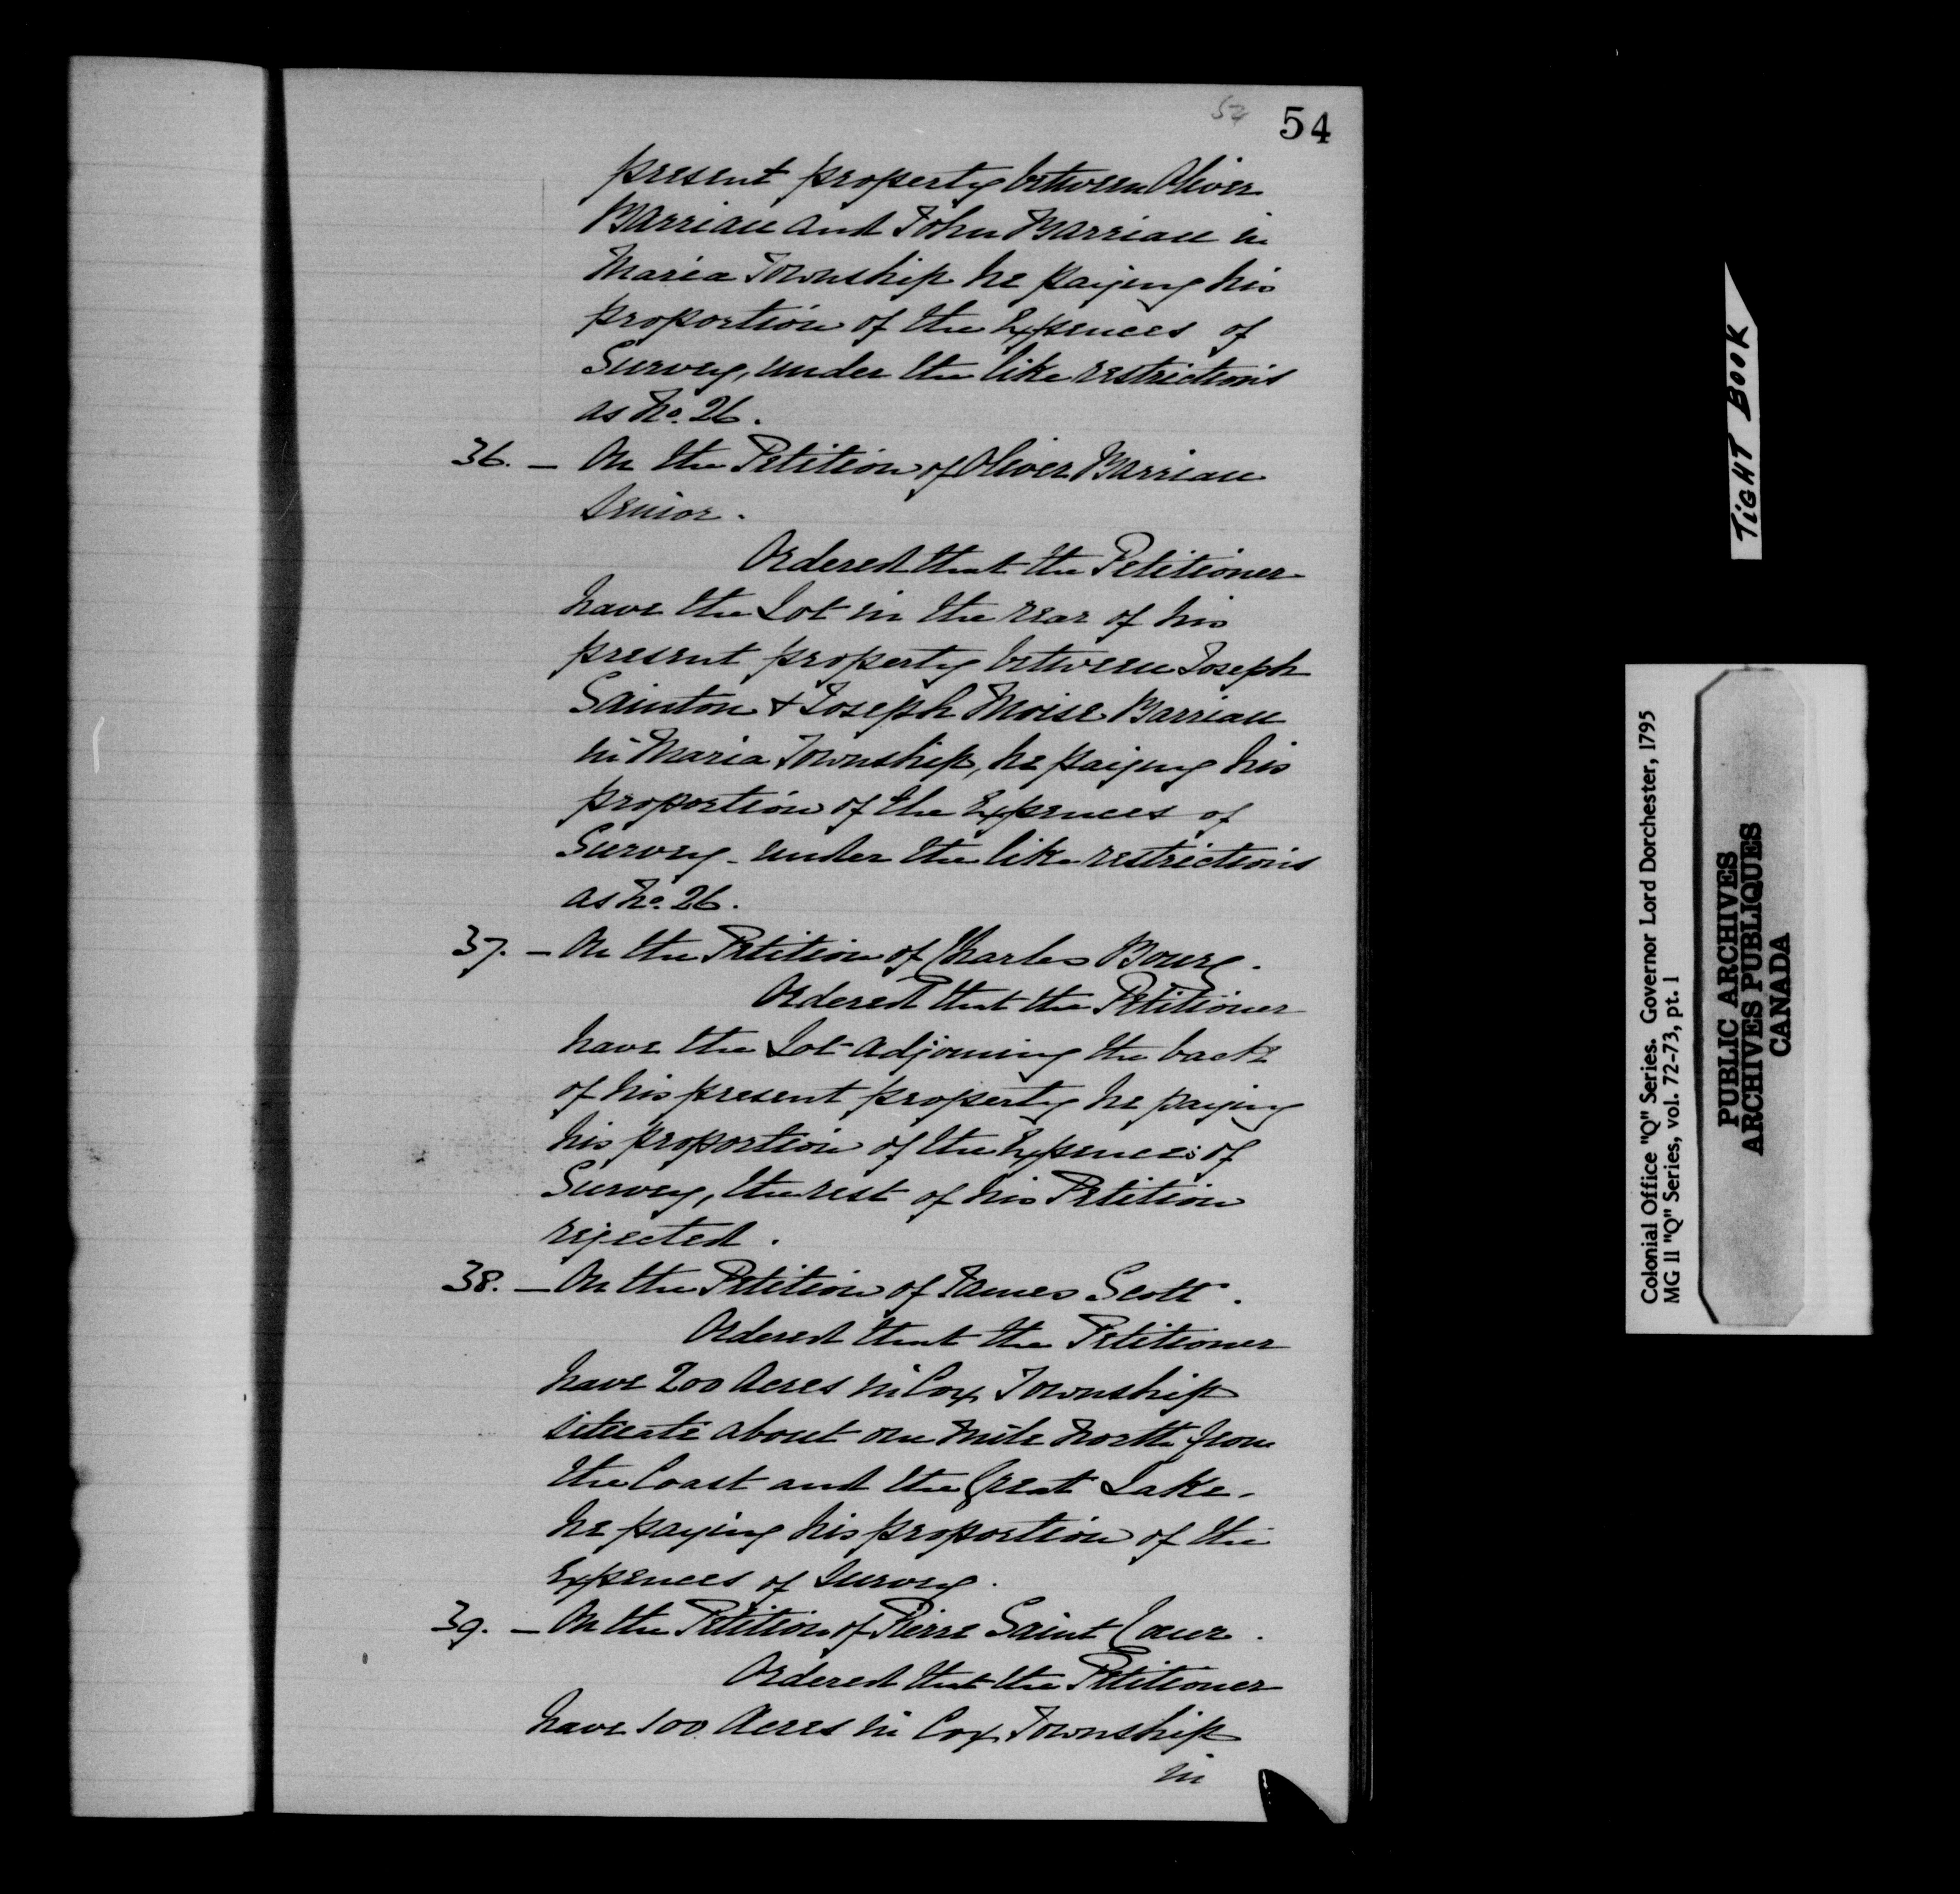 54
54
present property between Oliver
Barriau and John Barriau in
Maria Township he paying his
proportion of the Expences of
Survey, under the like restrictions
as No. 26.
36. — On the Petition of Oliver Barriau
Senior.
Ordered that the Petitioner
have the Lot in the rear of his
present property between Joseph
Sainton & Joseph Moise Barriau
in Maria Township, he paying his
proportion of the Expences of
Survey - under the like restrictions
as No. 26.
37. — On the Petition of Charles Bourg.
Ordered that the Petitioner
have the Lot adjoining the back
of his present property he paying
his proportion of the Expences of
Survey, the rest of his Petition
rejected.
38. — On the Petition of James Scott.
Ordered that the Petitioner
have 200 Acres in Cox Township
situate about one Mile North from
the Coast and the Great Lake -
he paying his proportion of the
Expences of Survey.
39. — On the Petition of Pierre Saint Cœur.
Ordered that the Petitioner
have 100 Acres in Cox Township
in
TIGHT BOOK
Colonial Office "Q" Series. Governor Lord Dorchester, 1795
MG 11 "Q" Series, vol. 72-73, pt. 1
PUBLIC ARCHIVES
ARCHIVES PUBLIQUES
CANADA